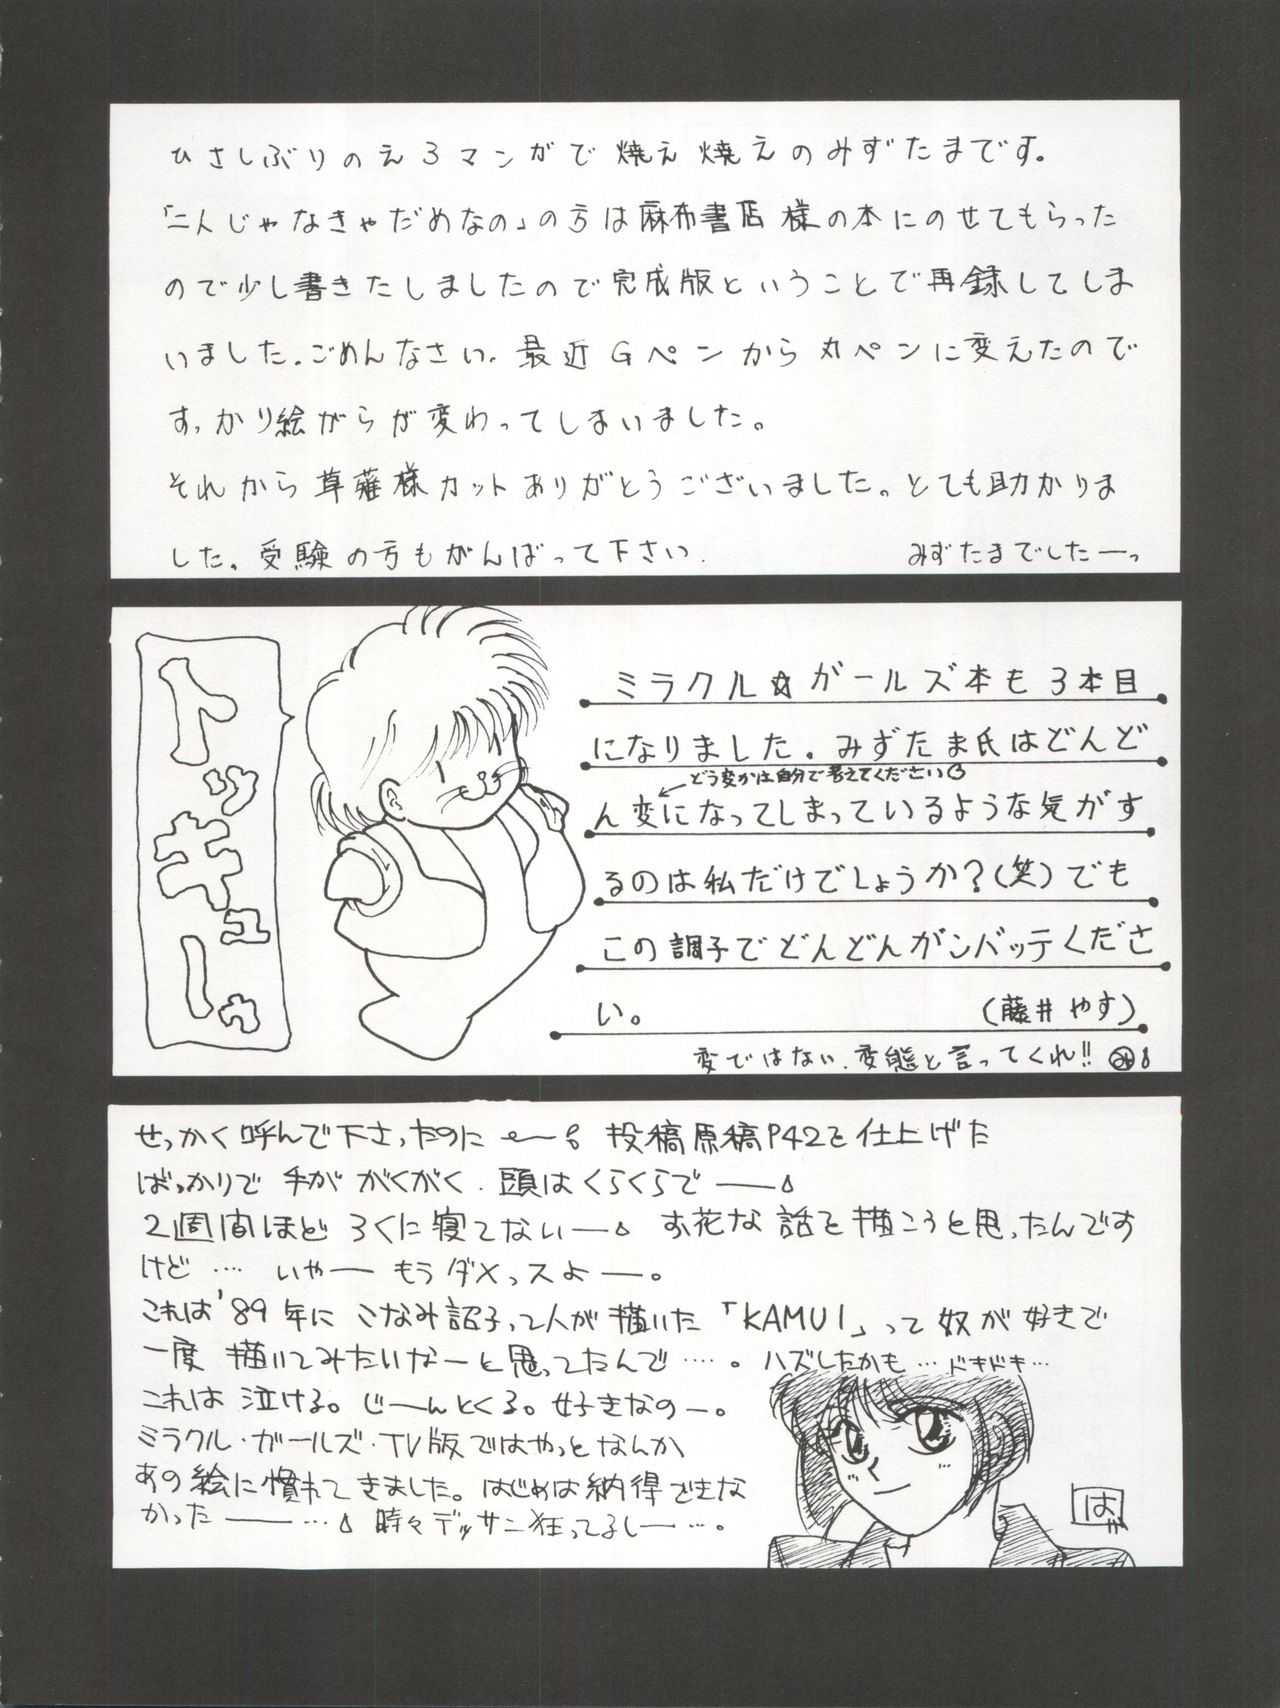 ひさしぶりのえろマンガで焼え焼えのみずたまです。
「二人じゃなきゃだめなの」の方は麻布書店様の本にのせてもらった
ので少し書きたしましたので完成版ということで再録してしま
いました。ごめんなさい。最近Gペンから丸ペンに変えたので
すっかり絵がらが変わってしまいました。
それから草薙様カットありがとうございました。とても助かりま
した。受験の方もがんばって下さい。
みずたまでしたーっ
トッキューゥ
ミラクル☆ガールズ本も3本目
になりました。みずたま氏はどんど
どう変かは自分で考えてください
ん変になってしまっているような気がす
るのは私だけでしょうか?(笑)でも
この調子でどんどんガンバッテくださ
い。
(藤井やす)
変ではない、変態と言ってくれ!!
せっかく呼んで下さったのに 投稿原稿P42を仕上げた
ばっかりで 手が がくがく、頭はくらくらで――
2週間ほど ろくに寝てない―― お花な話を描こうと思ったんです
けど‥‥ いやー もうダメっスよー。
これは'89年に こなみ詔子って人が描いた「KAMUI」って奴が好きで
一度 描いてみたいなーと思ってたんで‥‥。ハズしたかも…ドキドキ…
これは 泣ける。じーんとくる。好きなのー。
ミラクル・ガールズ・TV版ではやっとなんか
あの絵に慣れてきました。はじめは納得できな
かった――‥ 時々デッサン狂ってるしー‥。
ば